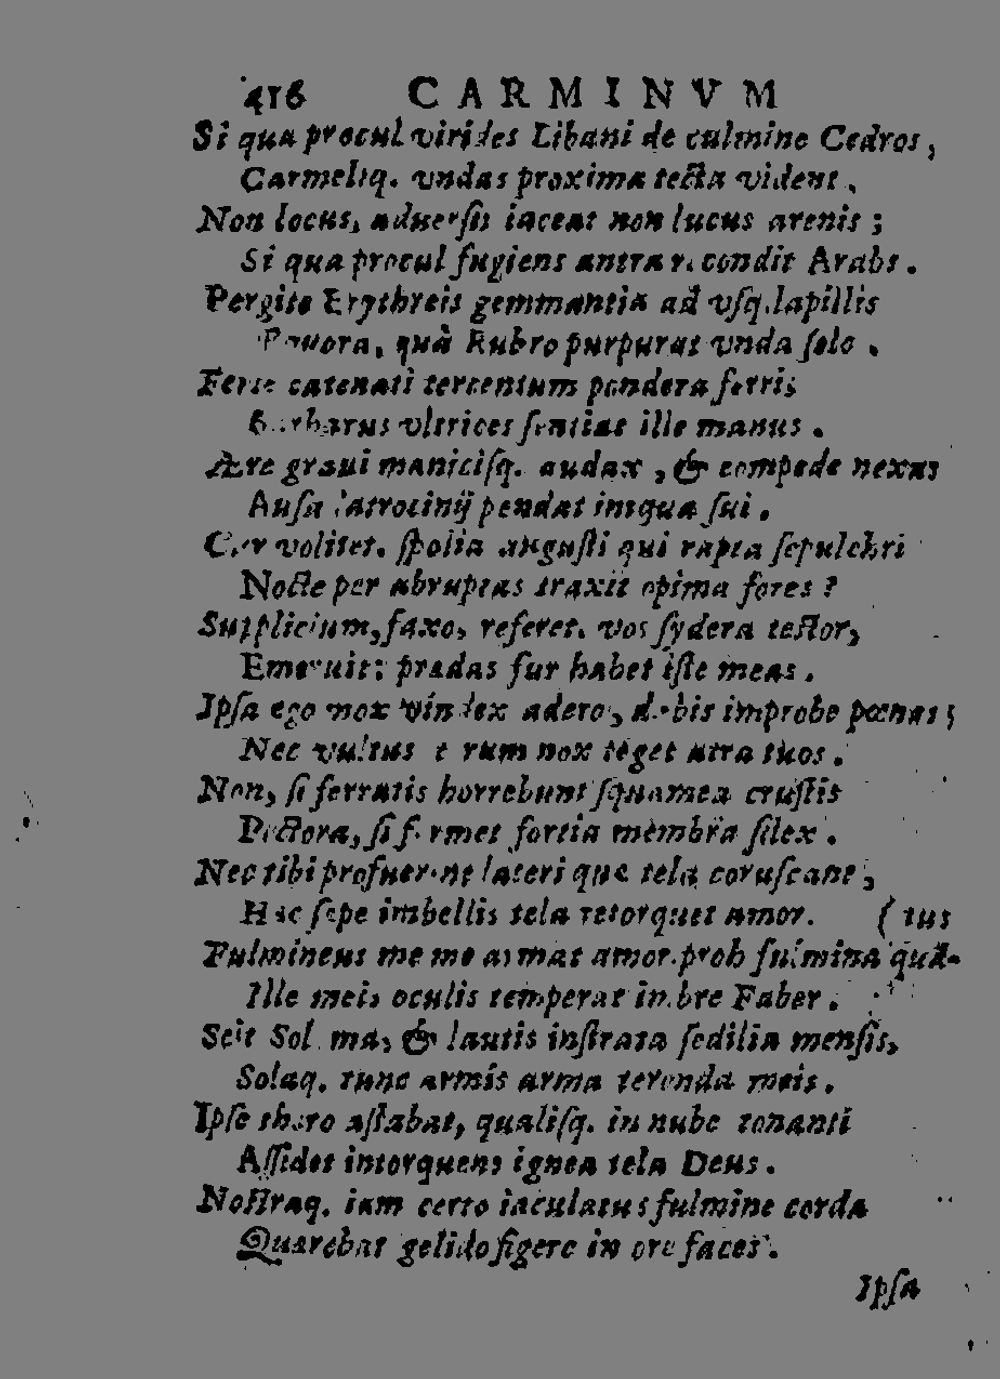 416 CARMINVM
Si qua procul virides Libani de culmine Cedros,
Carmeliq. vndas proxima tecta vident.
Non locus, aduersis iaceat non lucus arenis;
Si qua procul fugiens antra recondit Arabs.
Pergite Erythreis gemmantia ad vsq. lapillis
quà Rubro purpurat vnda solo.
Ferte catenati tercentum pondera ferri;
Barbarus vltrices sentiat ille manus.
Ære graui manicisq. audax, & compede nexus
Ausa latrocinij pendat iniqua sui.
Cur volitet, spolia angusti qui rapta sepulchri
Nocte per abruptas traxit opima fores?
Supplicium, faxo, referet. vos sydera testor,
Emeruit: prædas fur habet iste meas.
Ipsa ego nox vindex adero, dabis improbe pœnas;
Nec vultus rerum nox teget atra tuos.
Non, si ferratis horrebunt squamea crustis
Pectora, si firmet fortia membra silex.
Nec tibi profuerint lateri quæ tela coruscant,
Hæc sæpe imbellis tela retorquet amor. (tus
Fulmineus me me armat amor. proh fulmina quã-
Ille meis oculis temperat imbre Faber.
Scit Solyma, & lautis instrata sedilia mensis,
Solaq. tunc armis arma terenda meis.
Ipse thoro astabat, qualisq. in nube tonanti
Assidet intorquens ignea tela Deus.
Nostraq. iam certo iaculatus fulmine corda
Quærebat gelido figere in ore faces.
Ipsa